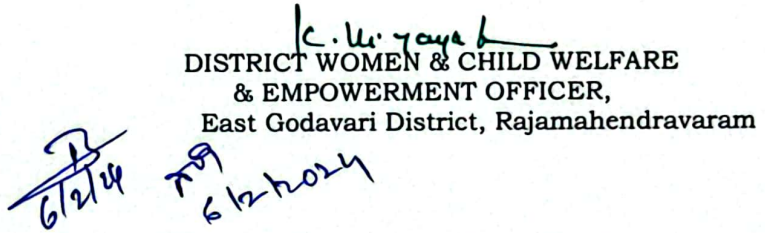 DISTRICT WOMEN & CHILD WELFARE
& EMPOWERMENT OFFICER,
East Godavari District, Rajamahendravaram
6/2/24
6/2/2024